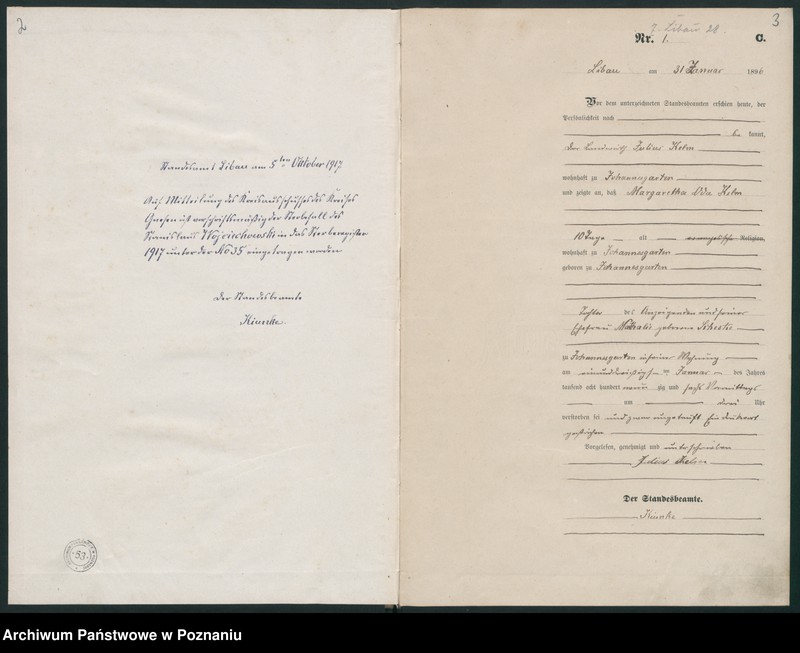 2
Standesamt Libau am 5ten Oktober 1917
Auf Mitteilung des Kreisausschusses des Kreises
Gnesen ist vorschriftsmäßig der Sterbefall des
Stanislaus Wojciechowski in das Sterberegister
1917 unter der No 35 eingetragen worden
Der Standesbeamte
53.
3
Libau
Nr. 1. C.
Libau am 31 Januar 1896
Vor dem unterzeichneten Standesbeamten erschien heute, der
Persönlichkeit nach
be kannt,
der Landwirth Julius Kelm
wohnhaft zu Johannesgarten
und zeigte an, daß Margaretha Kelm
10 Tage alt evangelische Religion,
wohnhaft zu Johannesgarten
geboren zu Johannesgarten
Tochter des Anzeigenden und seiner
Ehefrau geborene
zu Johannesgarten in seiner Wohnung
am einunddreißigsten Januar des Jahres
tausend acht hundert neun zig und sechs Vormittags
um drei Uhr
verstorben sei und zwar ungetauft
Vorgelesen, genehmigt und unterschrieben
Julius Kelm
Der Standesbeamte.
Archiwum Państwowe w Poznaniu